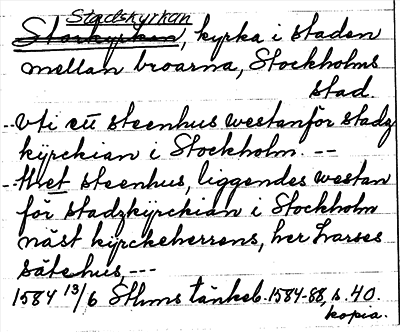 Stadskyrkan
Storkyrkan, kyrka i staden
mellan broarna, Stockholms
stad.
--vti ett steenhus westanför stadz
kÿrckian i Stockholm. --
-thet steenhus, liggendes westan
för stadzkÿrckian i Stockholm
näst kÿrckeherrens, her Larses
sätehus, ---
1584 13/6 Sthms tänkeb. 1584-88, s. 40.
kopia.